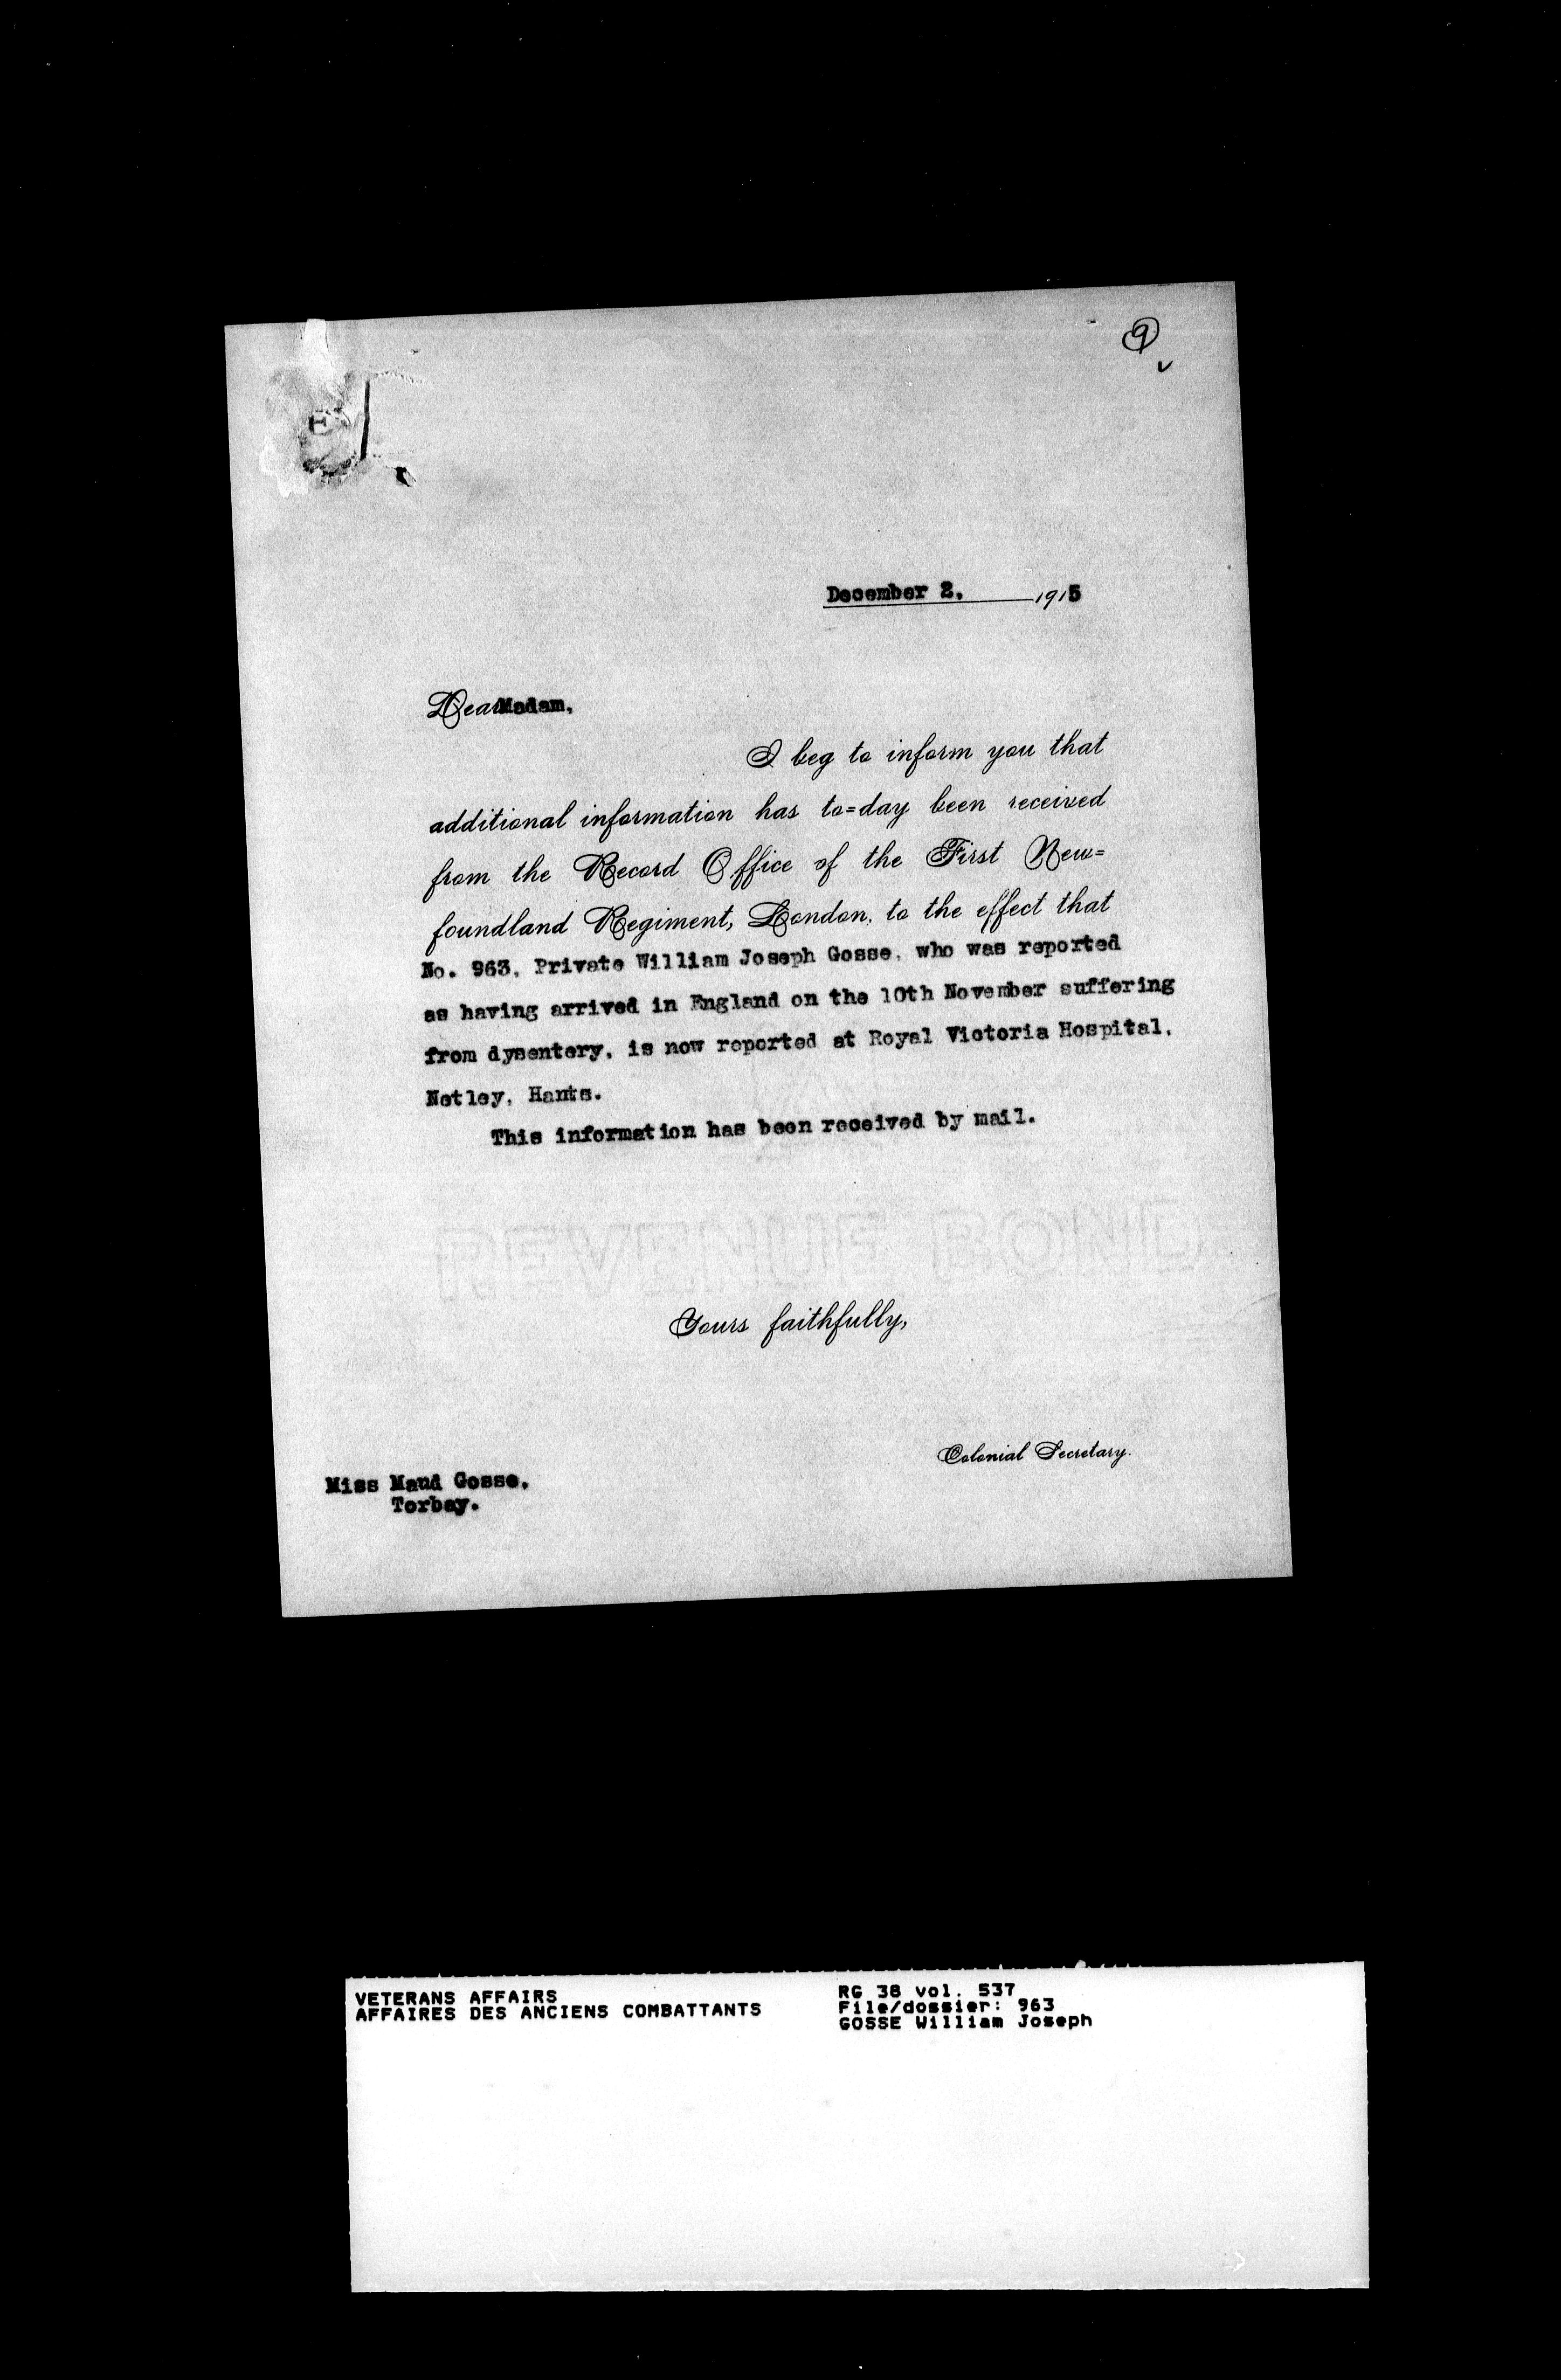 9
December 2, 1915
Dear Madam,
I beg to inform you that
additional information has to=day been received
from the Record Office of the First New=
foundland Regiment, London, to the effect that
No. 963, Private William Joseph Gosse, who was reported
as having arrived in England on the 10th November suffering
from dysentery, is now reported at Royal Victoria Hospital,
Netley, Hants.
This information has been received by mail.
REVENUE BOND
Yours faithfully,
Colonial Secretary.
Miss Maud Gosse,
Torbay.
VETERANS AFFAIRS
AFFAIRES DES ANCIENS COMBATTANTS
RG 38 vol. 537
File/dossier: 963
GOSSE William Joseph